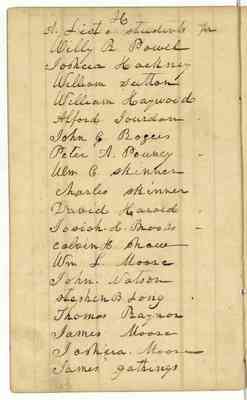 H
A List o students for
Willy R Powel
Joshua Hackney
William Sutton
William Haywood
Alford Jourdan
John G Rogers
Peter A. Pouncy
Wm C Skinner
Charles Skinner
David Harold
Josiah H. Brooks
Calvin C Shaw
Wm L. Moore
John Watson
Stephen B Long
Thomas Raynor
James Moore
Joshua Moore
James gathings